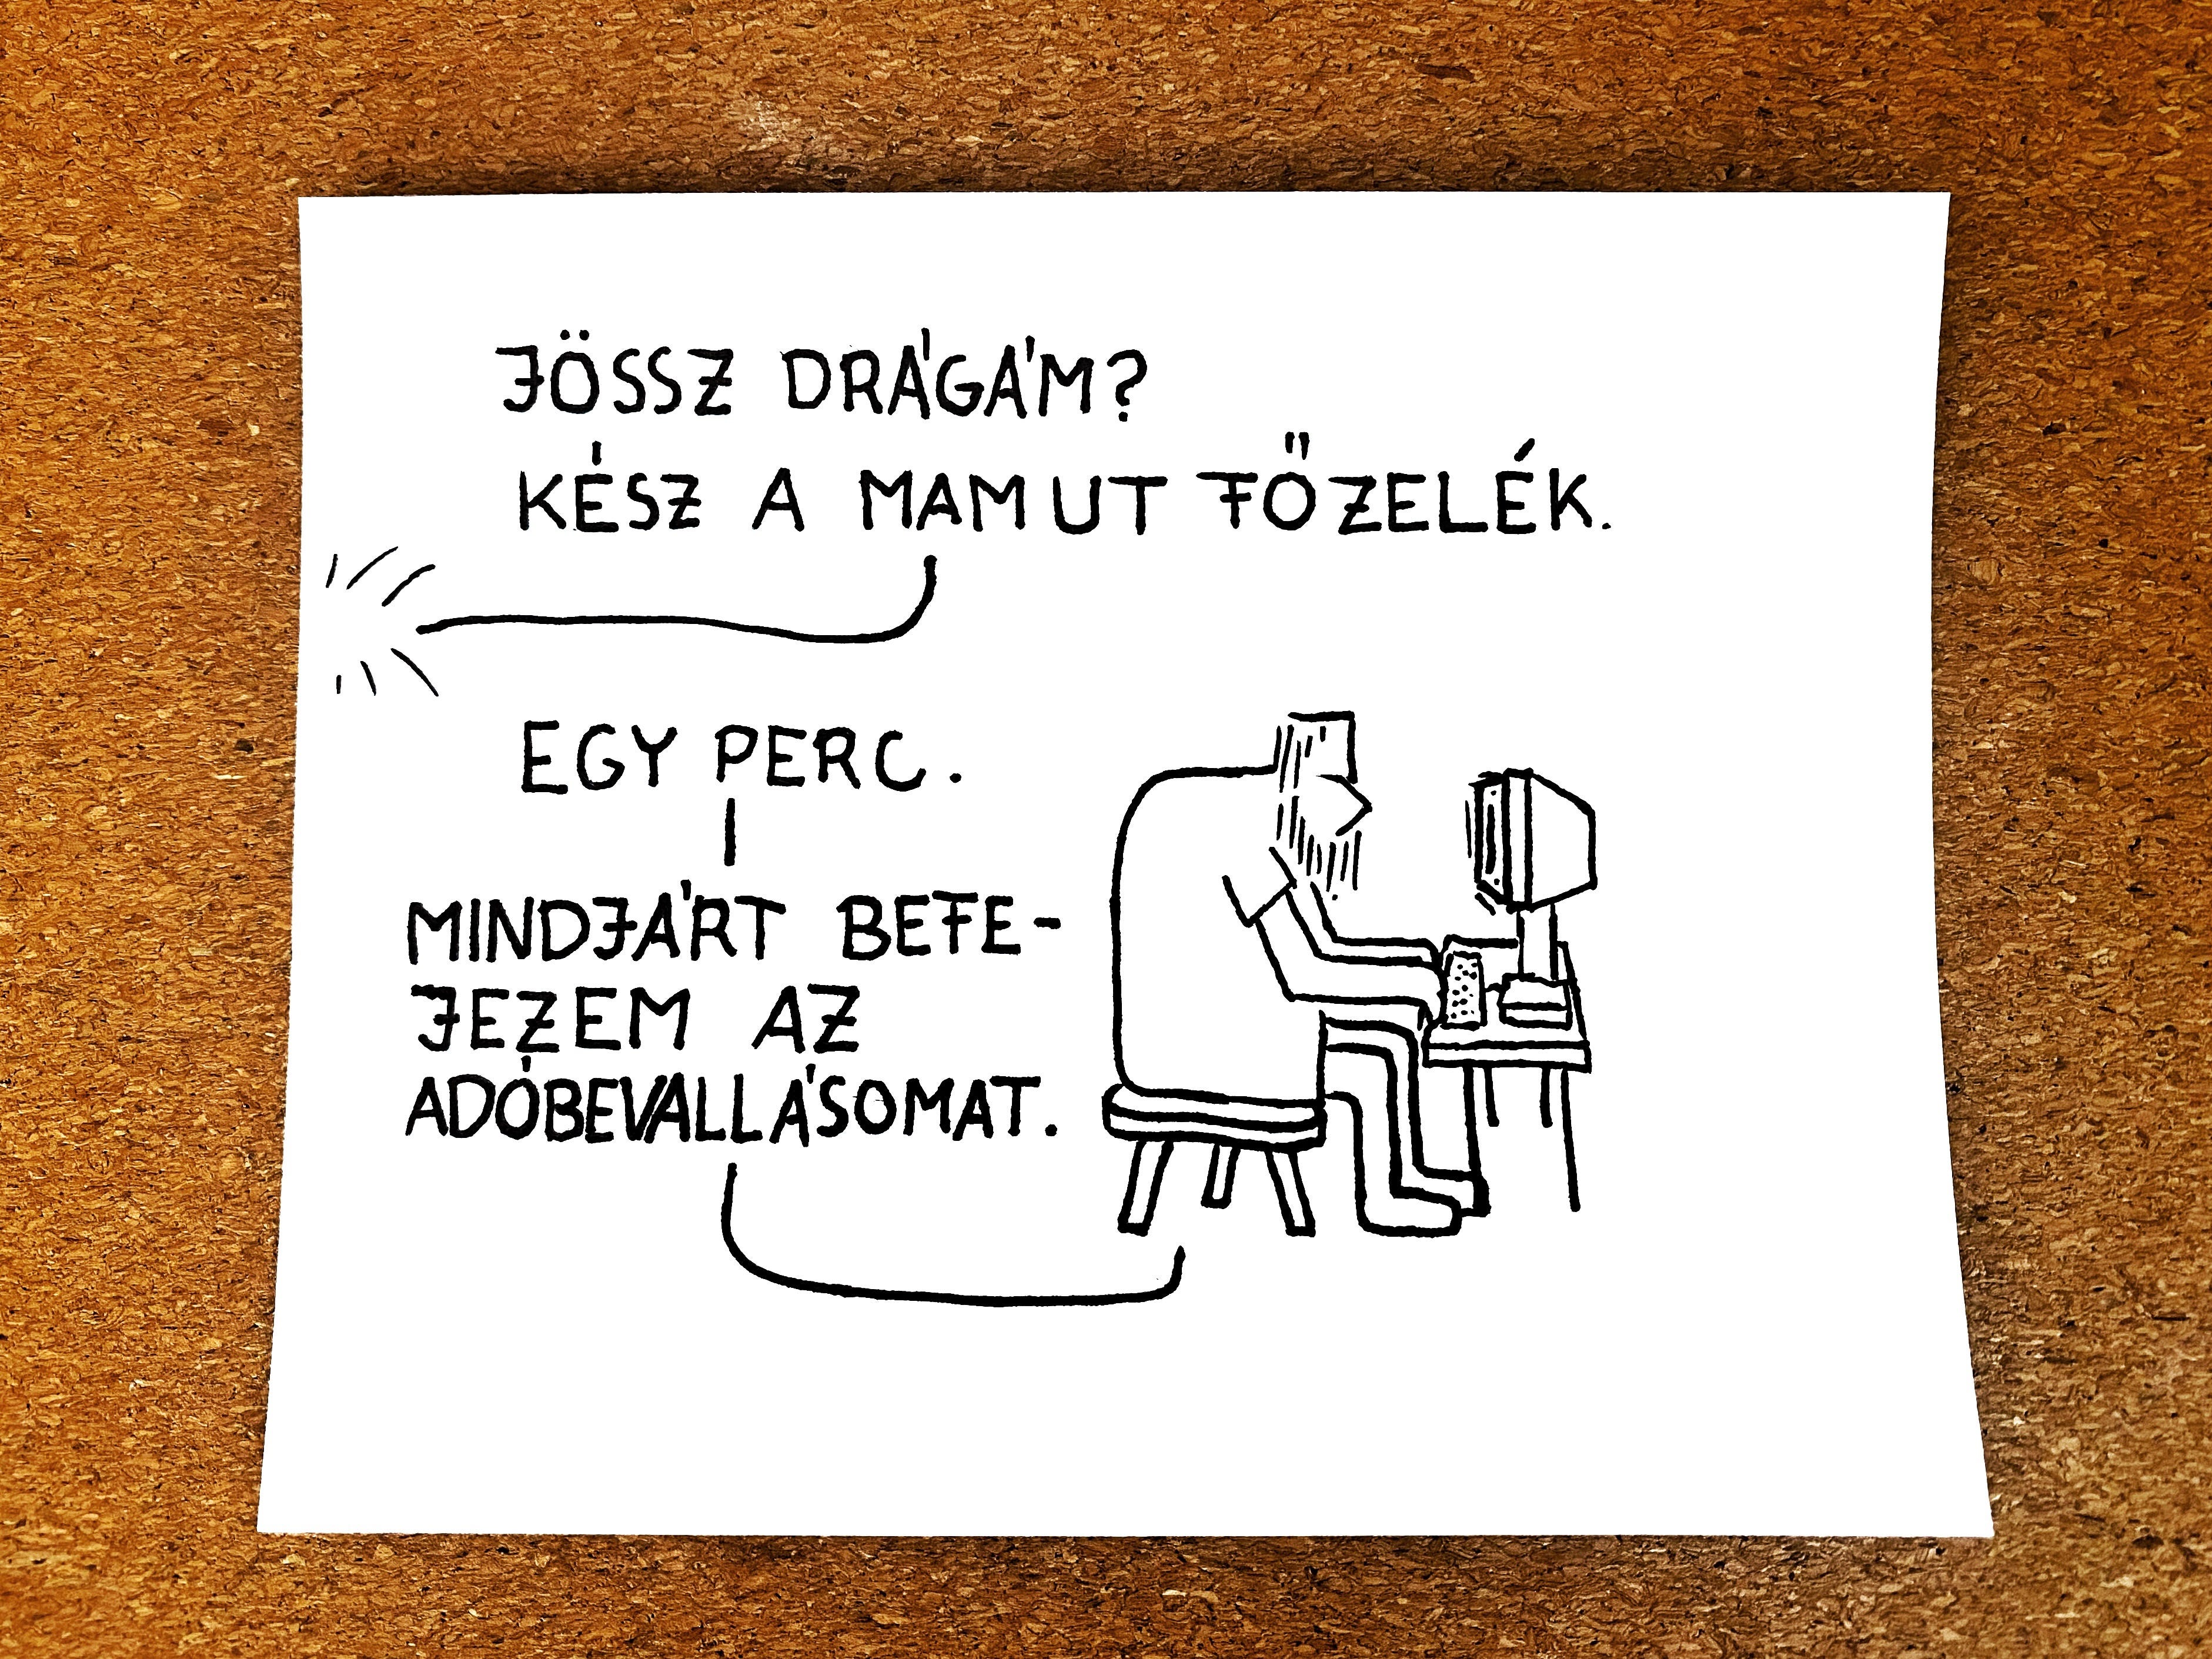 JÖSSZ DRÁGÁM?
KÉSZ A MAMUT FŐZELÉK.
EGY PERC.
MINDJÁRT BEFE-
JEZEM AZ
ADÓBEVALLÁSOMAT.